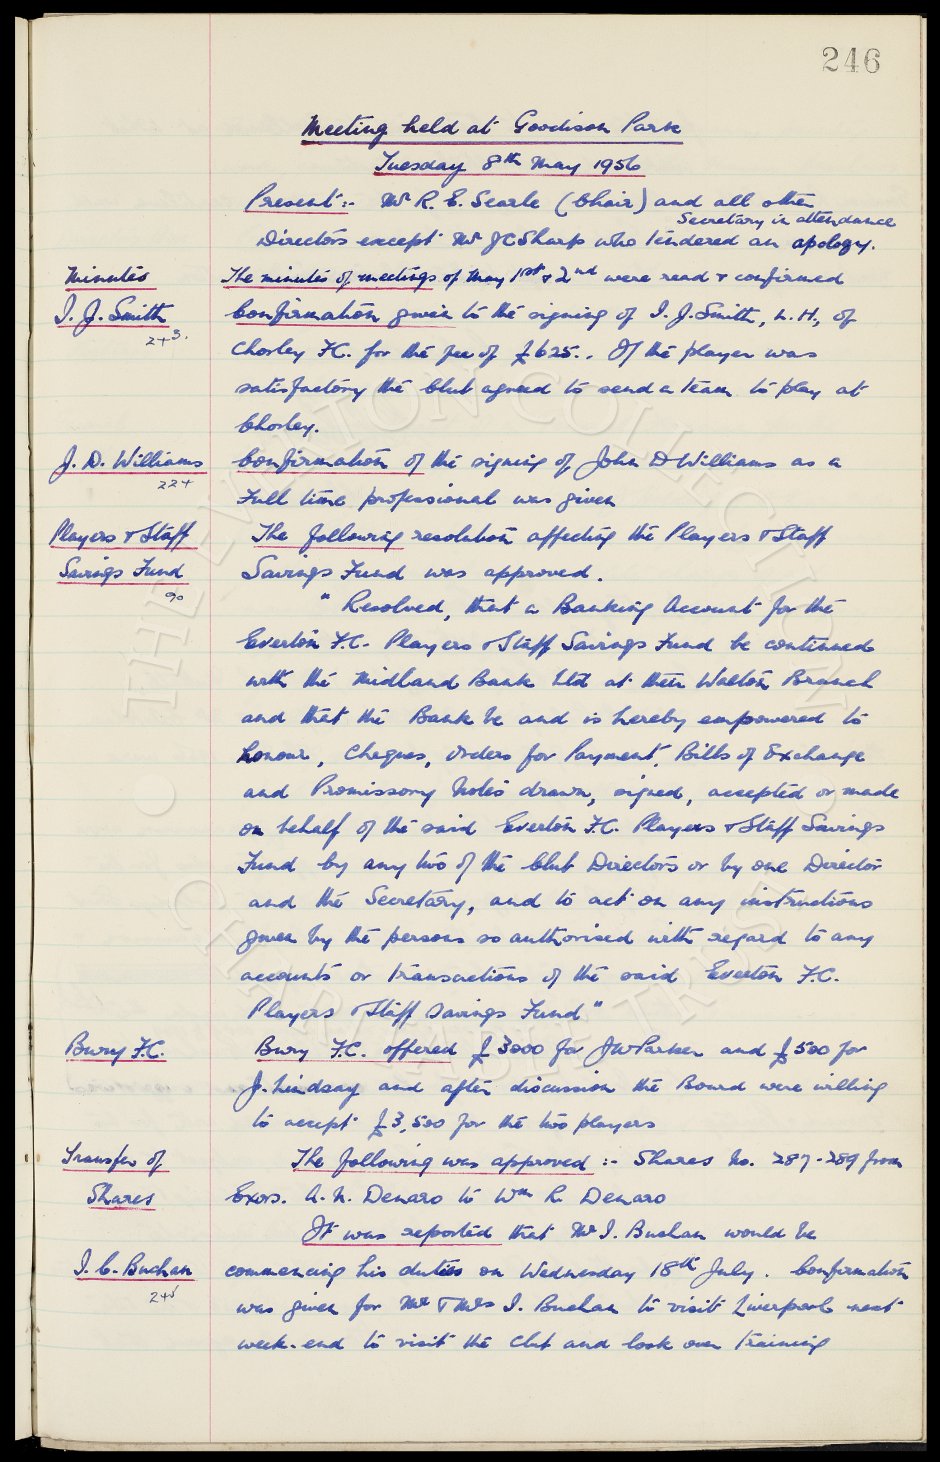 246
Meeting held at Goodison Park
Tuesday 8th May 1956
Present:- Mr R. E. Searle (Chair) and all other
Secretary in attendance
Directors except Mr J C Sharp who tendered an apology.
Minutes The minutes of meetings of May 1st & 2nd were read & confirmed
I. J. Smith Confirmation given to the signing of I. J. Smith, L.H., of
243.
Chorley F.C. for the fee of £625.. If the player was
satisfactory the Club agreed to send a team to play at
Chorley.
J. D. Williams Confirmation of the signing of John D Williams as a
224
Full time professional was given
Players & Staff The following resolution affecting the Players & Staff
Savings Fund Savings Fund was approved.
90
" Resolved, that a Banking Account for the
Everton F.C. Players & Staff Savings Fund be continued
with the Midland Bank Ltd at their Walton Branch
and that the Bank be and is hereby empowered to
honour, Cheques, Orders for Payment, Bills of Exchange
and Promissory Notes drawn, signed, accepted or made
on behalf of the said Everton F.C. Players & Staff Savings
Fund by any two of the Club Directors or by one Director
and the Secretary, and to act on any instructions
given by the persons so authorised with regard to any
accounts or transactions of the said Everton F.C.
Players & Staff Savings Fund"
Bury F.C. Bury F.C. offered £3000 for J W Parker and £500 for
J. Lindsay and after discussion the Board were willing
to accept £3,500 for the two players
Transfer of The following was approved :- Shares No. 287-289 from
Shares Exors. A. N. Denaro to Wm R Denaro
It was reported that Mr I. Buchan would be
I. C. Buchan commencing his duties on Wednesday 18th July. Confirmation
245
was given for Mr & Mrs I. Buchan to visit Liverpool next
week-end to visit the Club and look over training
THE EVERTON COLLECTION
CHARITABLE TRUST